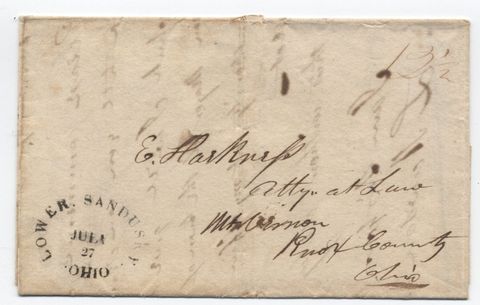 12½
E. Harkness
Atty. at Law
Mt. Vernon
Knox County
Ohio
LOWER. SANDUSKY.
JULY
27
OHIO